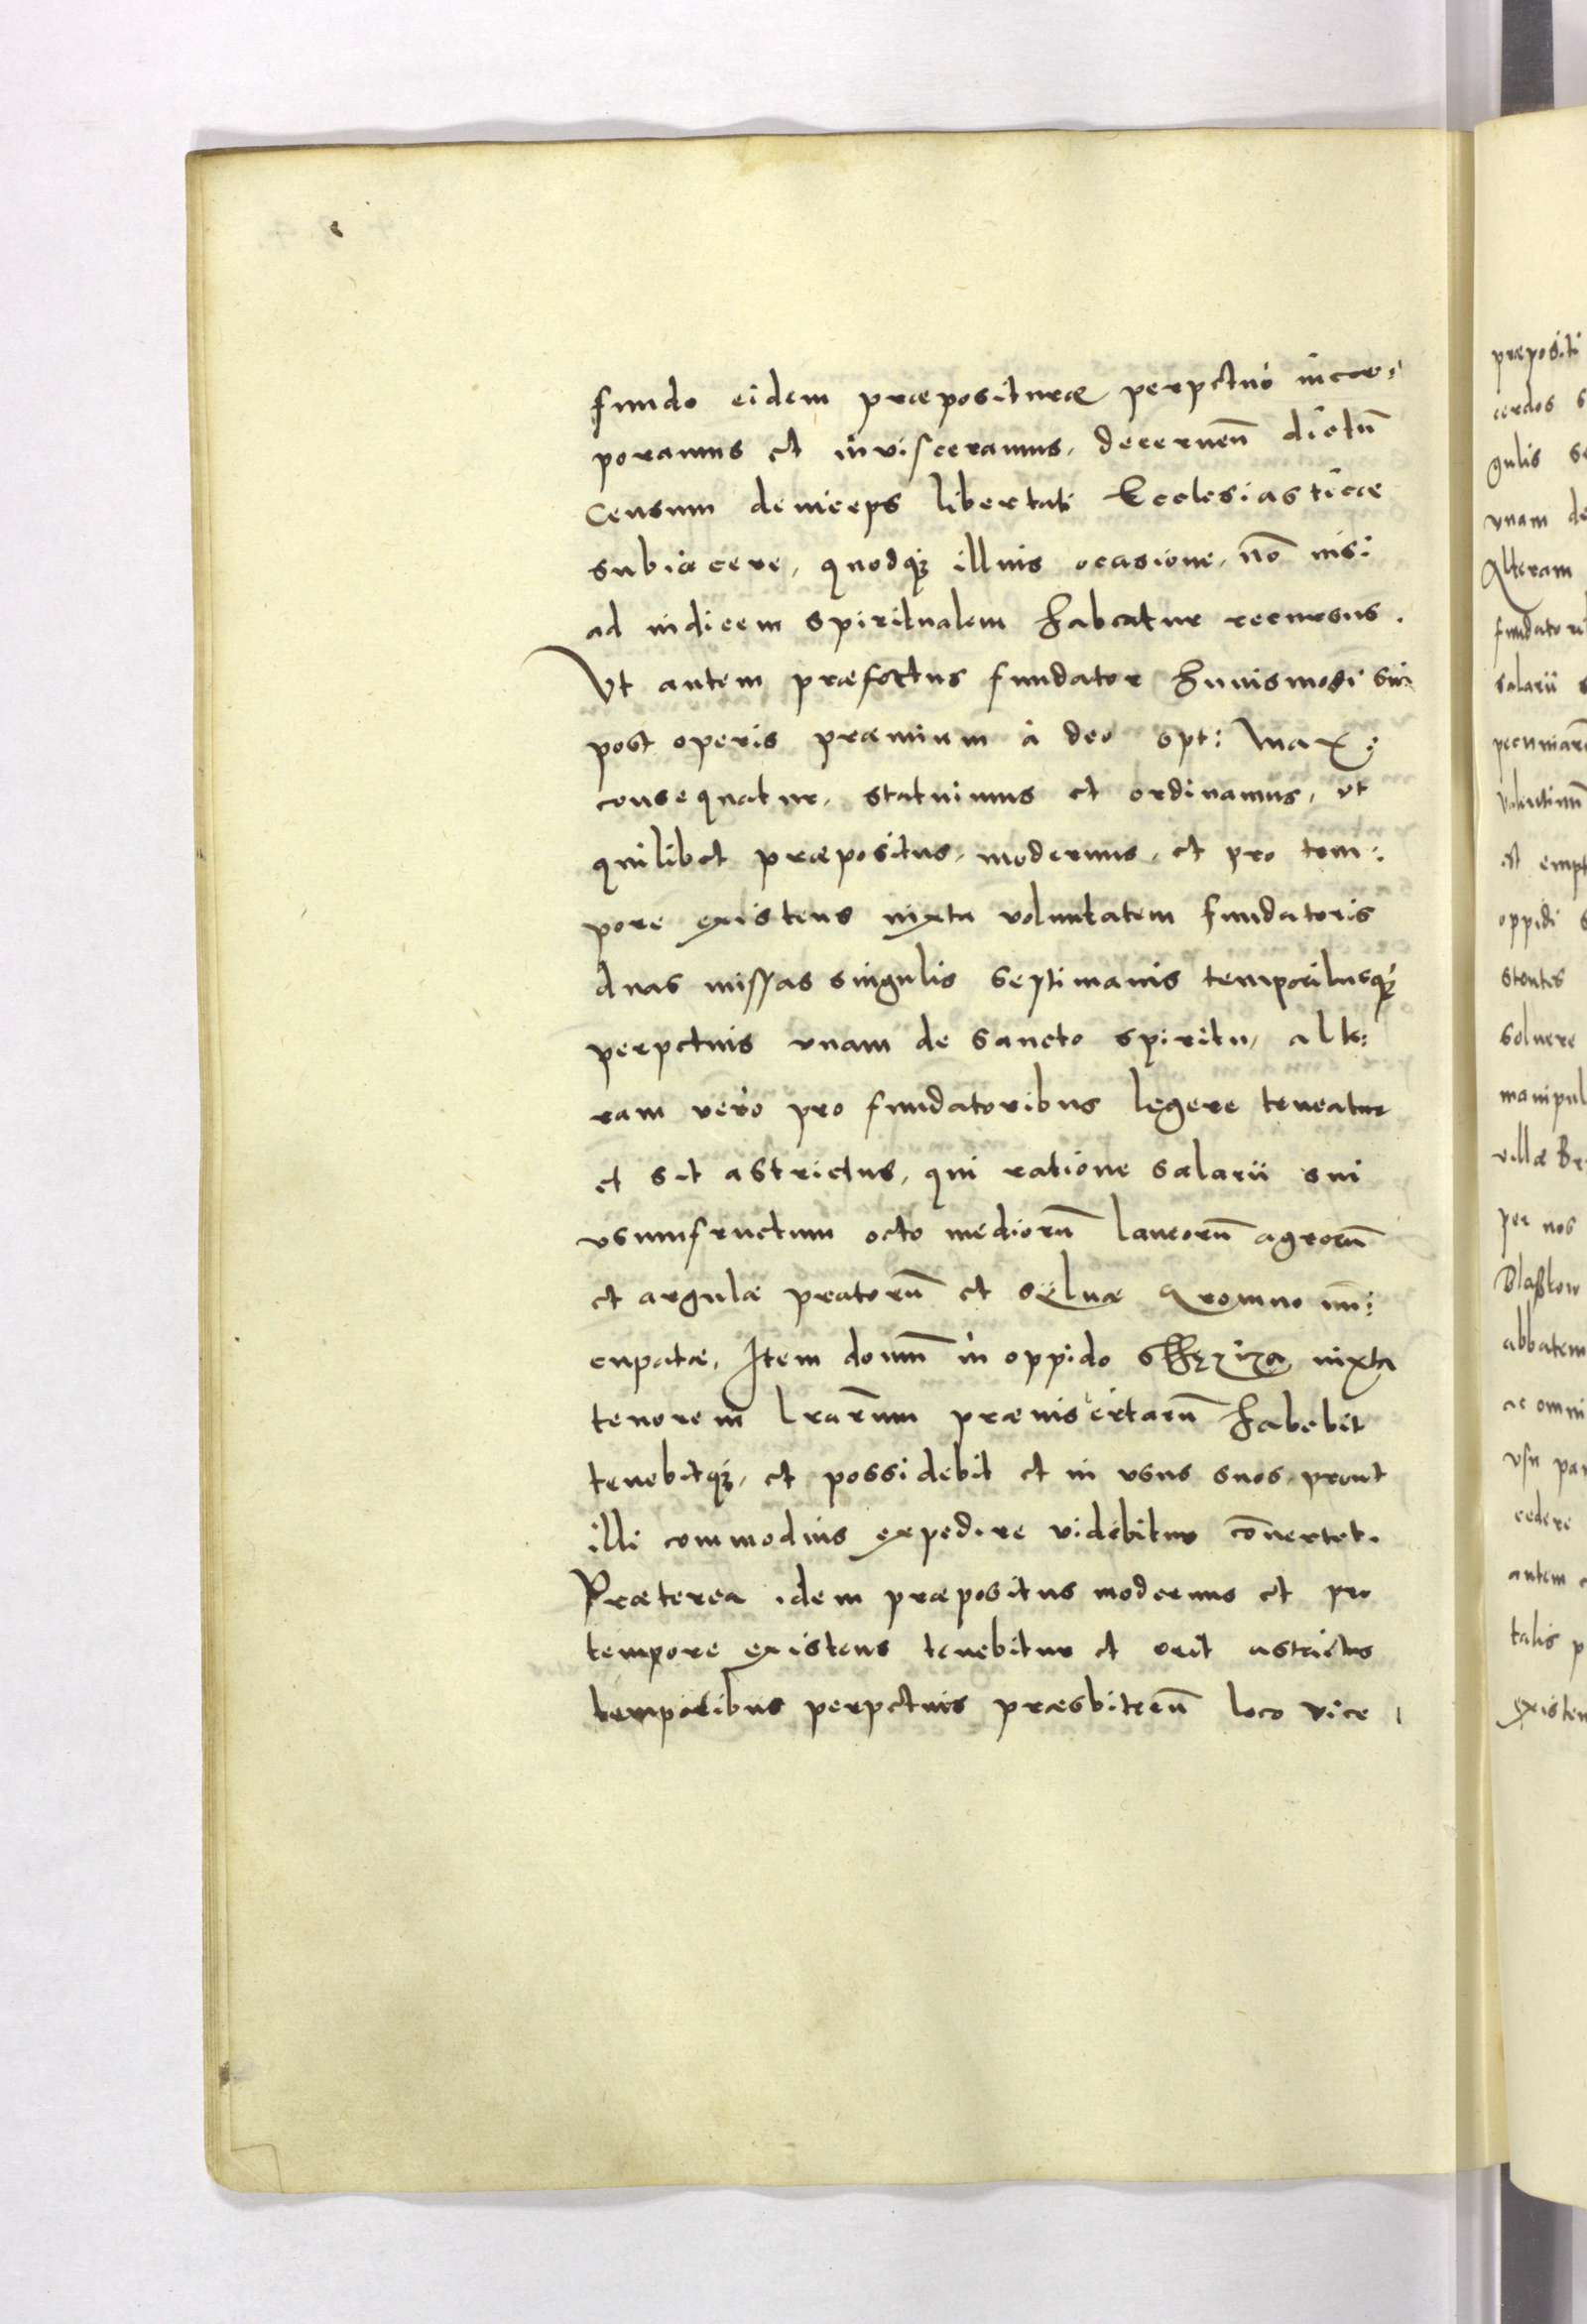 fundo eidem præposituræ perpetuo incor:
poramus et invisceramus, decernen̄ dictū
Censum deinceps libertati Ecclesiasticæ
subiacere, quodq; illius ocasione, nō nisi
ad iudicem spiritualem habeatur recursus.
Vt autem præfectus fundator huiusmodi sui
post operis præmium à deo opt: Max:
consequatur, statuimus et ordinamus, vt
quilibet præpositus, modernus, et pro tem:
pore existens iuxta voluntatem fundatoris
duas missas singulis septimanis temporibusq;
perpetuis vnam de sancto spiritu, alte:
ram vero pro fundatoribus legere teneatur
et sit astrictus, qui ratione salarii sui
vsumfructum octo mediorū laneorū agrorū
et argulæ pratorū et sylvæ Gromno nū:
cupatæ, Item domū in oppido iuxta
tenorem l̄rarum præinsertarū habebit
tenebitq;, et possidebit et in vsus suos, prout
illi commodius expedire videbitur cōvertet.
Præterea idem præpositus modernus et pro
tempore existens tenebitur et erit astrictus
temporibus perpetuis præsbiterū loco vice
præpositi
cerdos s
gulis se
vnam de
Alteram
fundatori
salarii s
pecuniarū
Valentinū
et empt
oppidi s
stentes
soluere
manipul
villæ Br
per nos
Blaßkow
abbatem
ac omni
vsu par
cedere
autem
talis p
existen